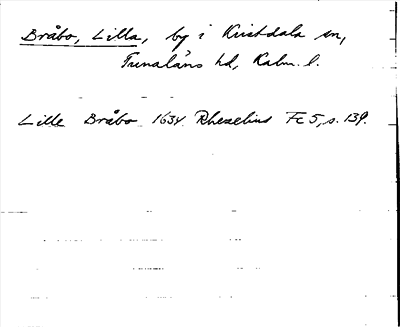 Bråbo, Lilla, by i Kristdala sn,
Tunaläns hd, Kalm. l.
Lille Bråbo 1634 Rhezelius Fc 5, s. 139.